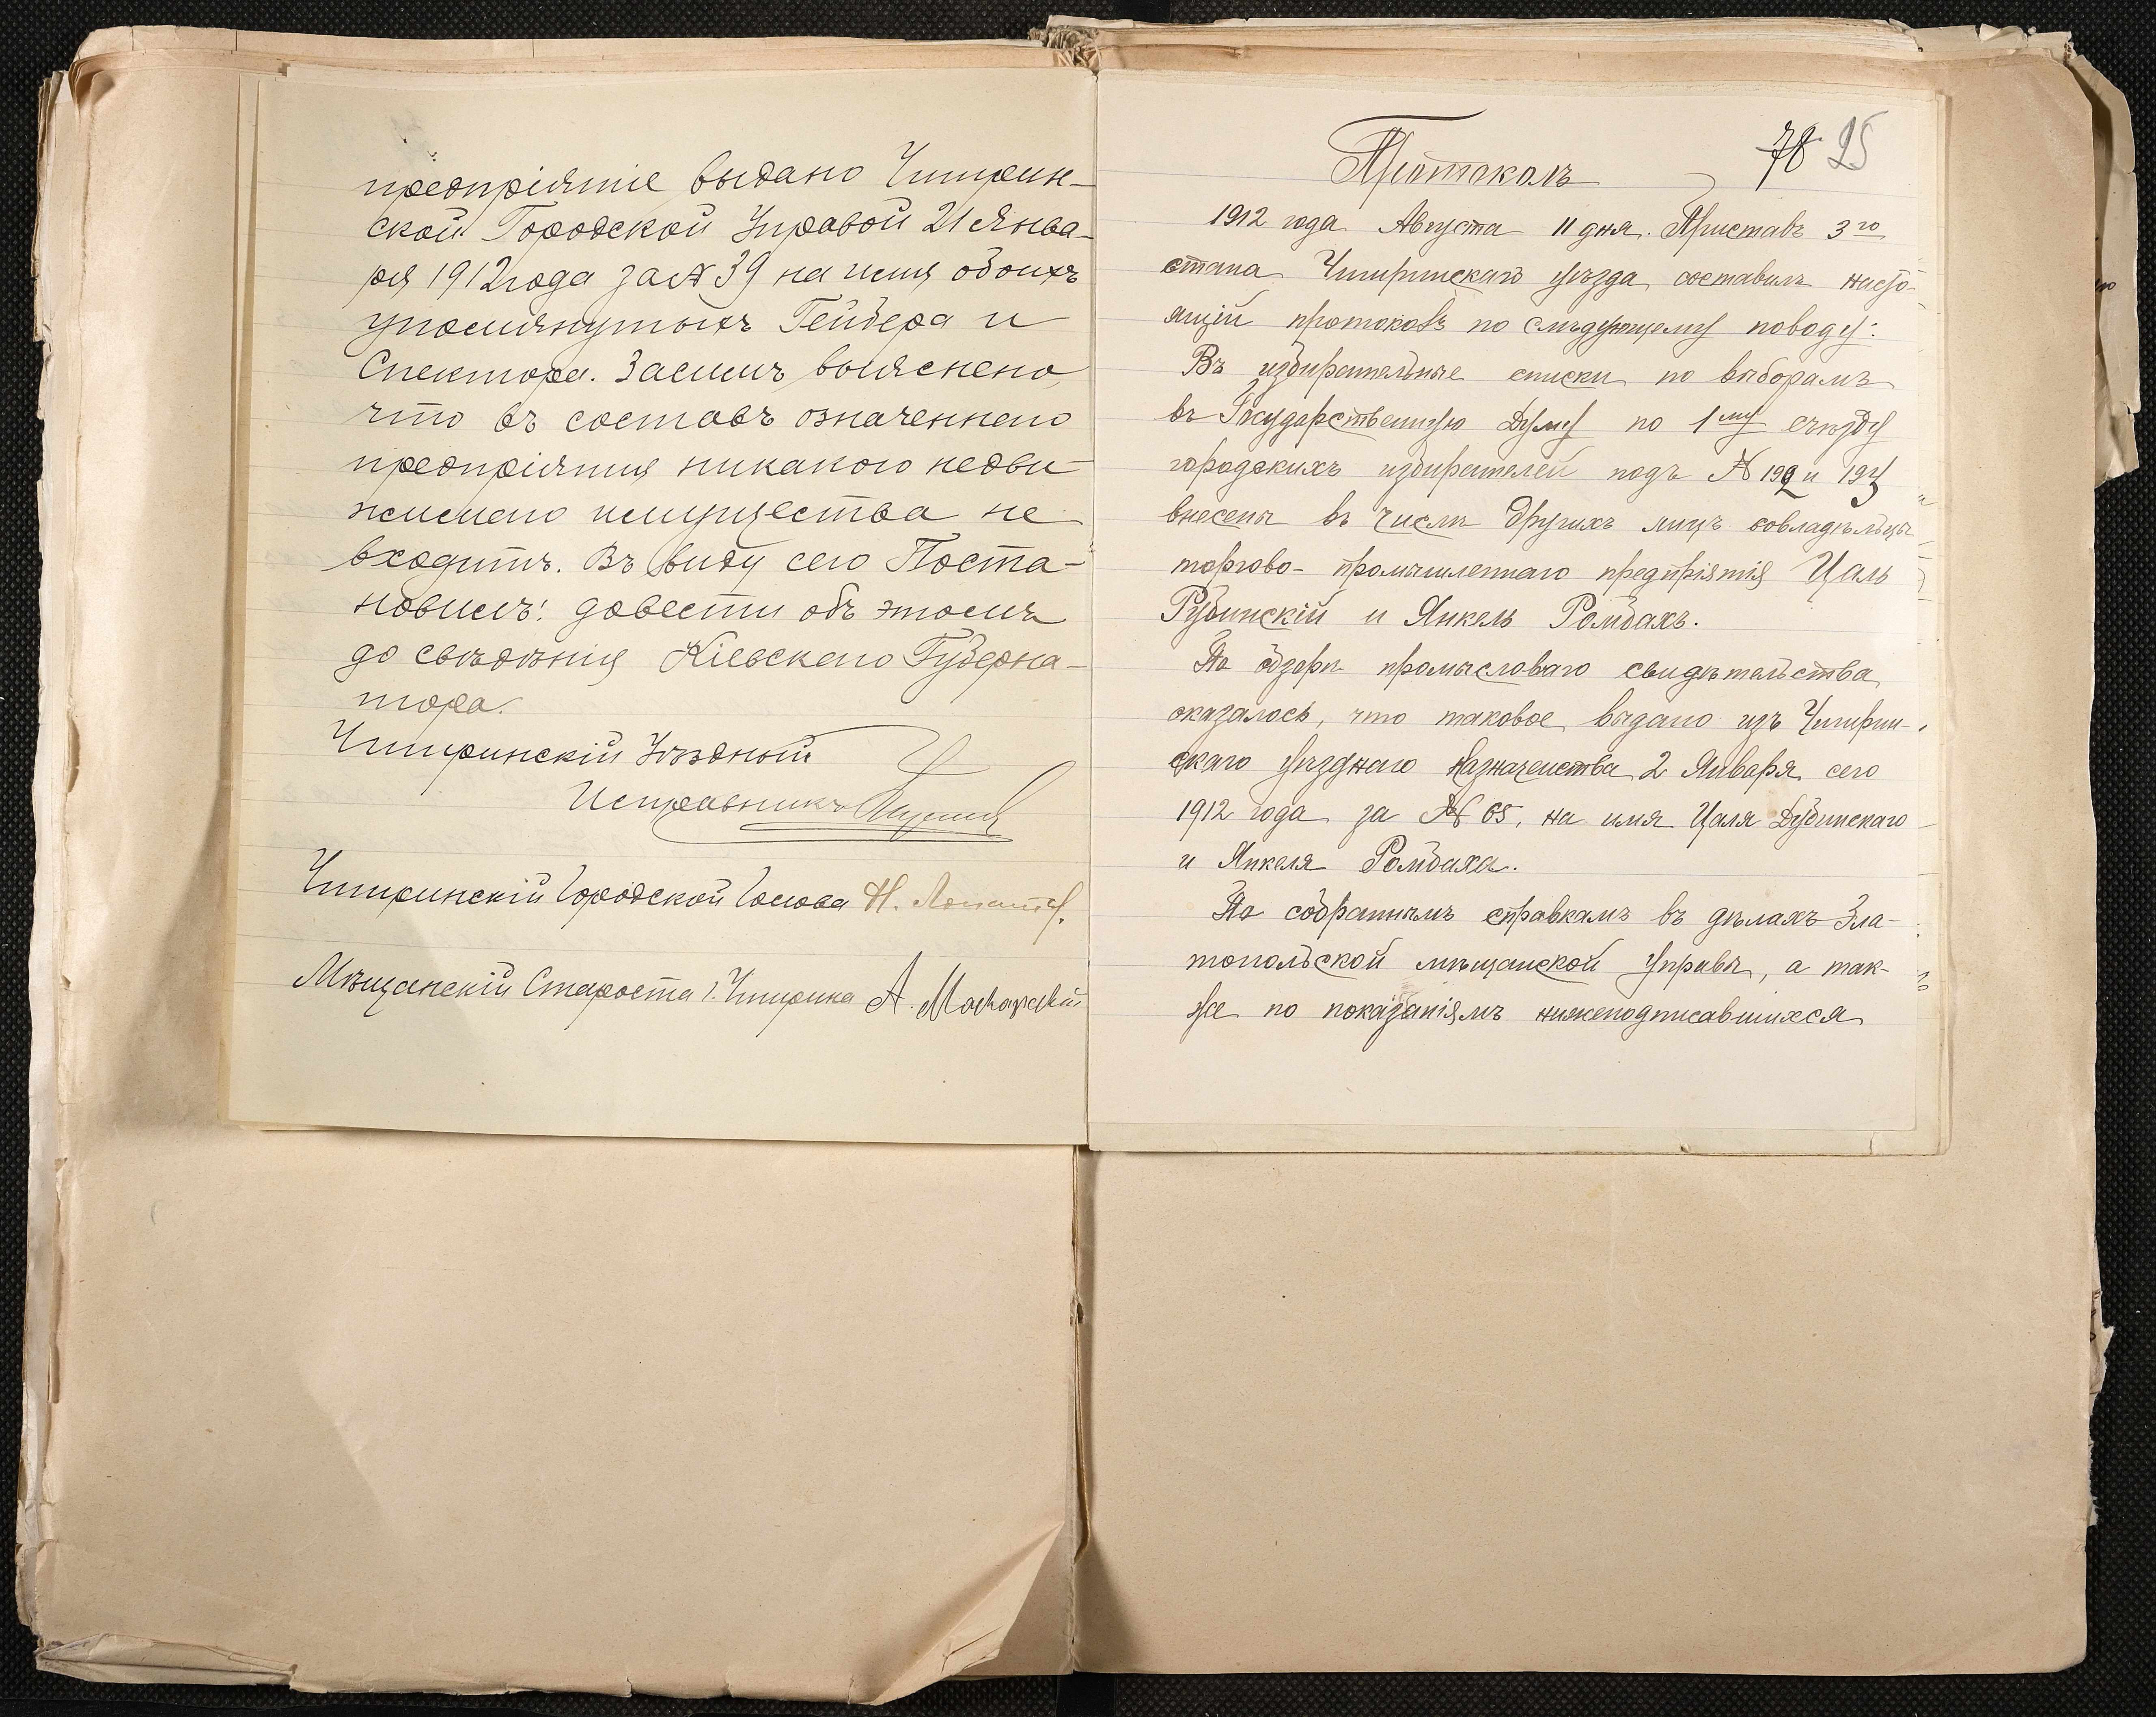 предпріятіе выдано Чигирин-
ской Городской Управой 21 Янва-
ря 1912 года за № 39 на имя обоихъ
упомянутыхъ Гейбера и
Спектора. Засимъ выяснено,
что въ составъ означеннаго
предпріятія никакого недви-
жимаго имущества не
входитъ. Въ виду сего Поста-
новилъ: довести объ этомъ
до свѣдѣнія Кіевскаго Губерна-
тора.
Чигиринскій Уѣздный
Исправникъ
Чигиринскій Городской Голова Н.
Мѣщанскій Староста г. Чигирина А. Макарскій
78 25
Протоколъ
1912 года Августа 11 дня. Приставъ 3го
стана Чигиринскаго уѣзда составилъ насто-
ящій протоколъ по слѣдующему поводу:
Въ избирательные списки по выборамъ
въ Государственную Думу по 1му съѣзду
городскихъ избирателей подъ № 192 и 193
внесены въ числѣ другихъ лицъ совладѣльцы
торгово-промышленнаго предпріятія Цаль
Рубинскій и Янкель Ромбахъ.
По обзорѣ промысловаго свидѣтельства
оказалось, что таковое выдано изъ Чигирин-
скаго уѣзднаго Казначейства 2 Января сего
1912 года за № 65, на имя Цаля Дубинскаго
и Янкеля Ромбаха.
По собраннымъ справкамъ въ дѣлахъ Зла-
топольской мѣщанской управы, а так-
же по показаніямъ нижеподписавшихся